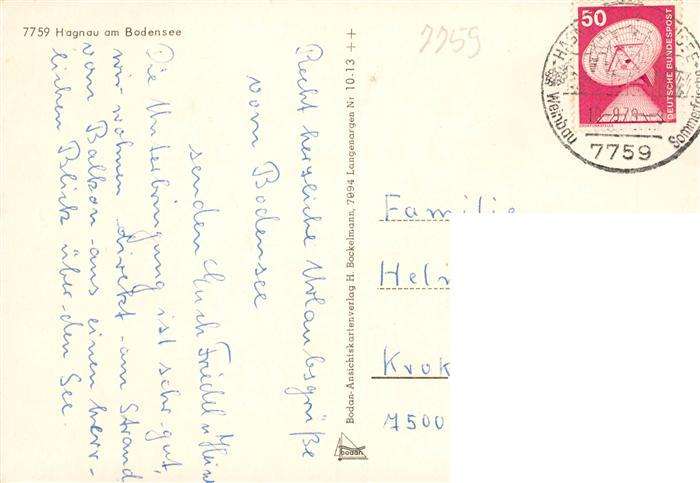 7759 Hagnau am Bodensee
7759
50
DEUTSCHE BUNDESPOST
Weinbau
Sommerfrische
7759
Recht herzliche Urlaubsgrüße
vom Bodensee
senden Euch Friedel u. Heinz
Die Unterbringung ist sehr gut,
wir wohnen direkt am Strand
vom Balkon aus einen herr-
lichen Blick über den See.
Bodan-Ansichtskartenverlag H. Bockelmann, 7994 Langenargen Nr 10-13 ++
bodan
Familie
7500